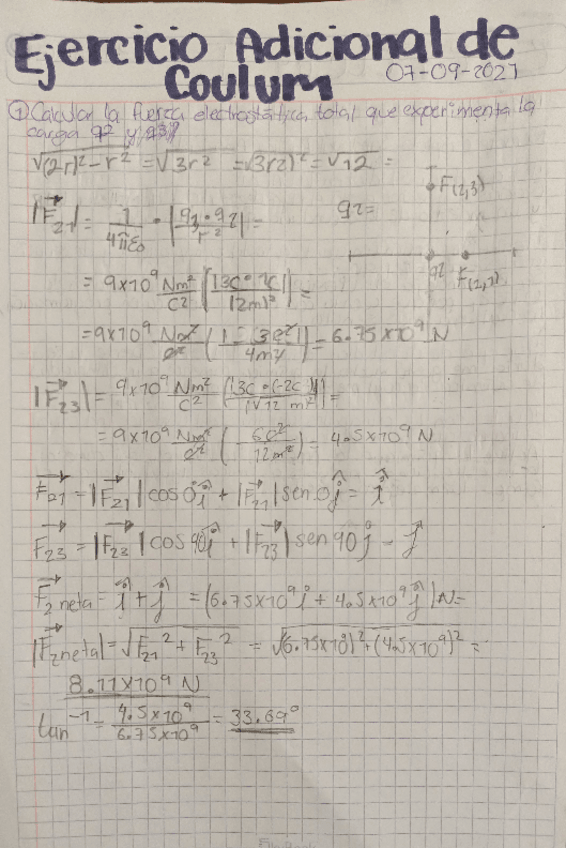 Ejercicio Adicional de
Coulum
07-09-2021
① Calcular la fuerza electrostática total que experimenta la
carga q2 y q3
√(2r)²-r² = √3r² = √3(2)² = √12 =
|F21| = 1/4πε₀ • |q1•q2/r²| =
q2=
F(2,3)
q2
F(2,1)
= 9x10⁹ Nm²/C² (|3C•1C|/|2m|²) =
= 9x10⁹ Nm²/C² (|-3C²|/4m²) = 6.75x10⁹ N
|F23| = 9x10⁹ Nm²/C² (|3C•(-2C)|/|√12 m²|) =
= 9x10⁹ Nm²/C² (6C²/12m²) = 4.5x10⁹ N
F21 = |F21| cos 0î + |F21| sen 0ĵ = î
F23 = |F23| cos 90î + |F23| sen 90ĵ = ĵ
F2 neta = î + ĵ = (6.75x10⁹î + 4.5x10⁹ĵ)N=
|F2neta| = √F21² + F23² = √(6.75x10⁹)²+(4.5x10⁹)² =
8.11x10⁹ N
tan⁻¹ = 4.5x10⁹/6.75x10⁹ = 33.69°